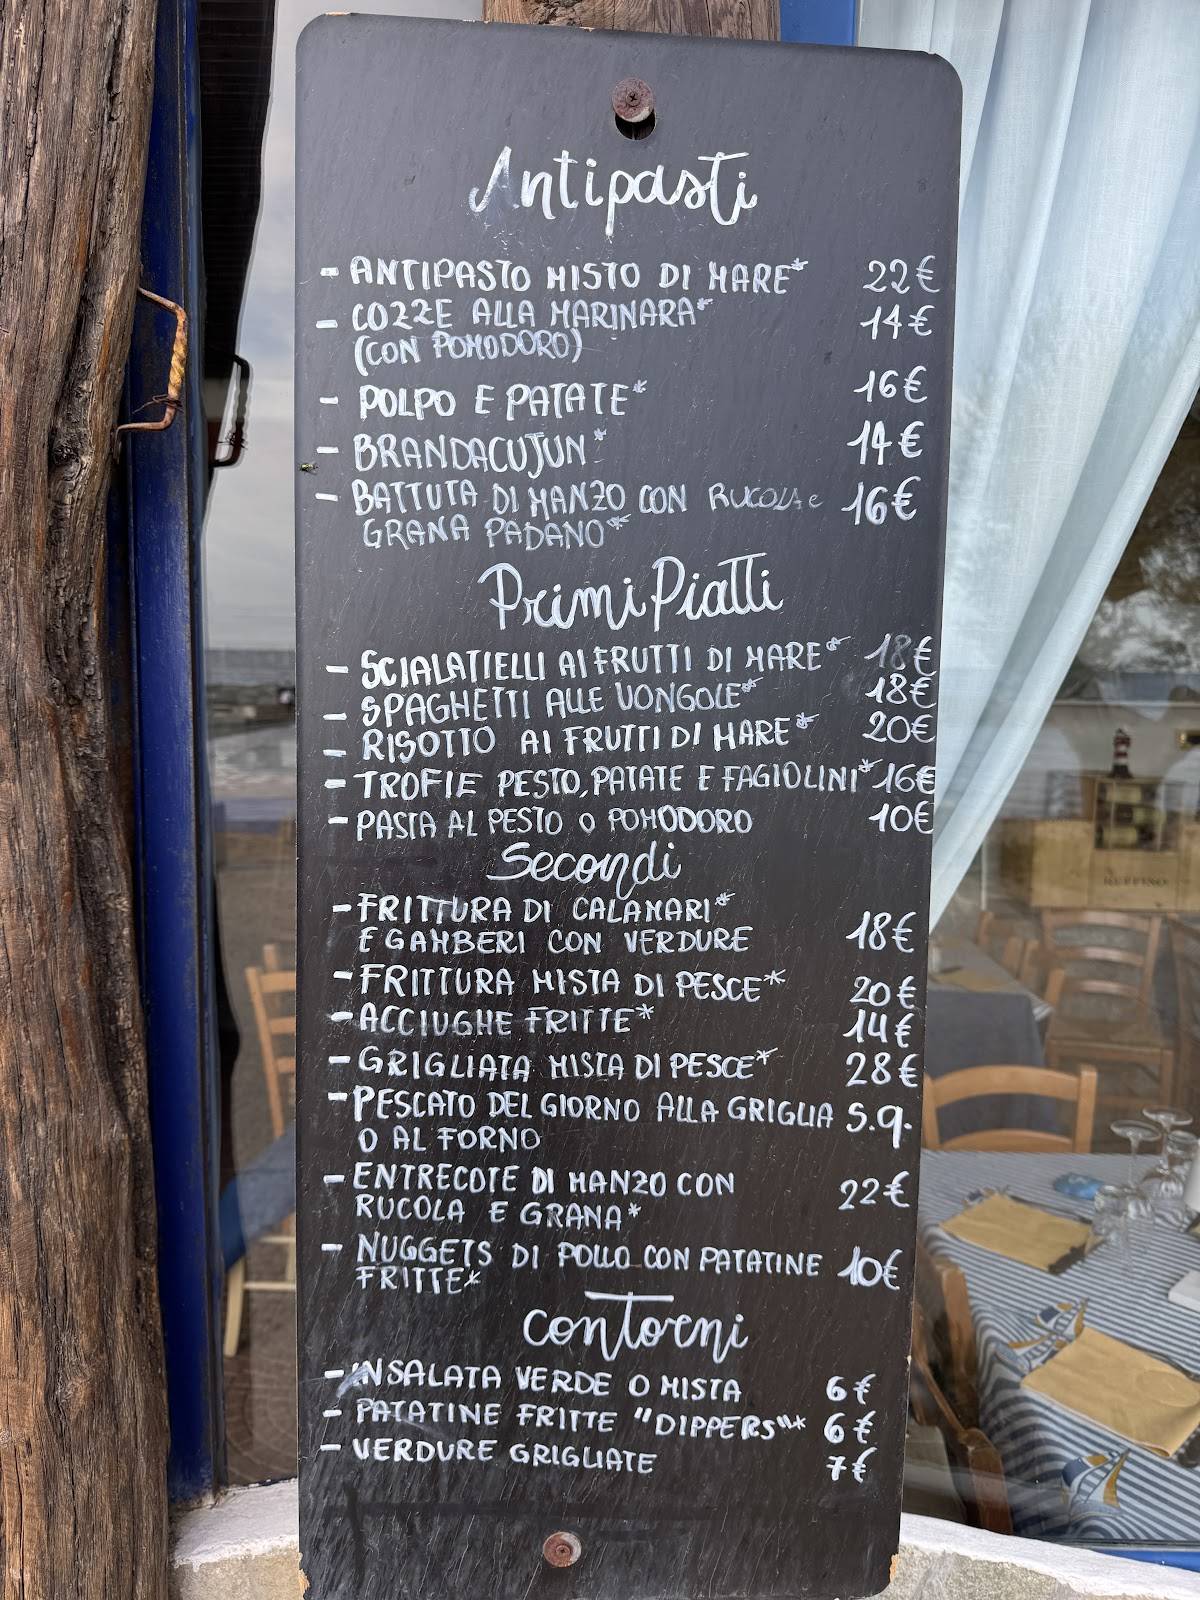 Antipasti
- ANTIPASTO MISTO DI MARE* 22€
- COZZE ALLA MARINARA* 14€
(CON POMODORO)
- POLPO E PATATE* 16€
- BRANDACUJUN* 14€
- BATTUTA DI MANZO CON RUCOLA e 16€
GRANA PADANO*
Primi Piatti
- SCIALATIELLI AI FRUTTI DI MARE* 18€
- SPAGHETTI ALLE VONGOLE* 18€
- RISOTTO AI FRUTTI DI MARE* 20€
- TROFIE PESTO, PATATE E FAGIOLINI* 16€
- PASTA AL PESTO O POMODORO 10€
Secondi
- FRITTURA DI CALAMARI*
E GAMBERI CON VERDURE 18€
- FRITTURA MISTA DI PESCE* 20€
- ACCIUGHE FRITTE* 14€
- GRIGLIATA MISTA DI PESCE* 28€
- PESCATO DEL GIORNO ALLA GRIGLIA S.q.
O AL FORNO
- ENTRECOTE DI MANZO CON 22€
RUCOLA E GRANA*
- NUGGETS DI POLLO CON PATATINE 10€
FRITTE*
Contorni
- INSALATA VERDE O MISTA 6€
- PATATINE FRITTE "DIPPERS"* 6€
- VERDURE GRIGLIATE 7€
RUFFINO